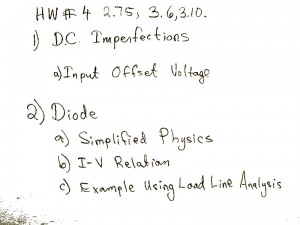 HW # 4 2.75, 3.6, 3.10.
1) D.C. Imperfections
a) Input Offset Voltage
2) Diode
a) Simplified Physics
b) I-V Relation
c) Example Using Load Line Analysis